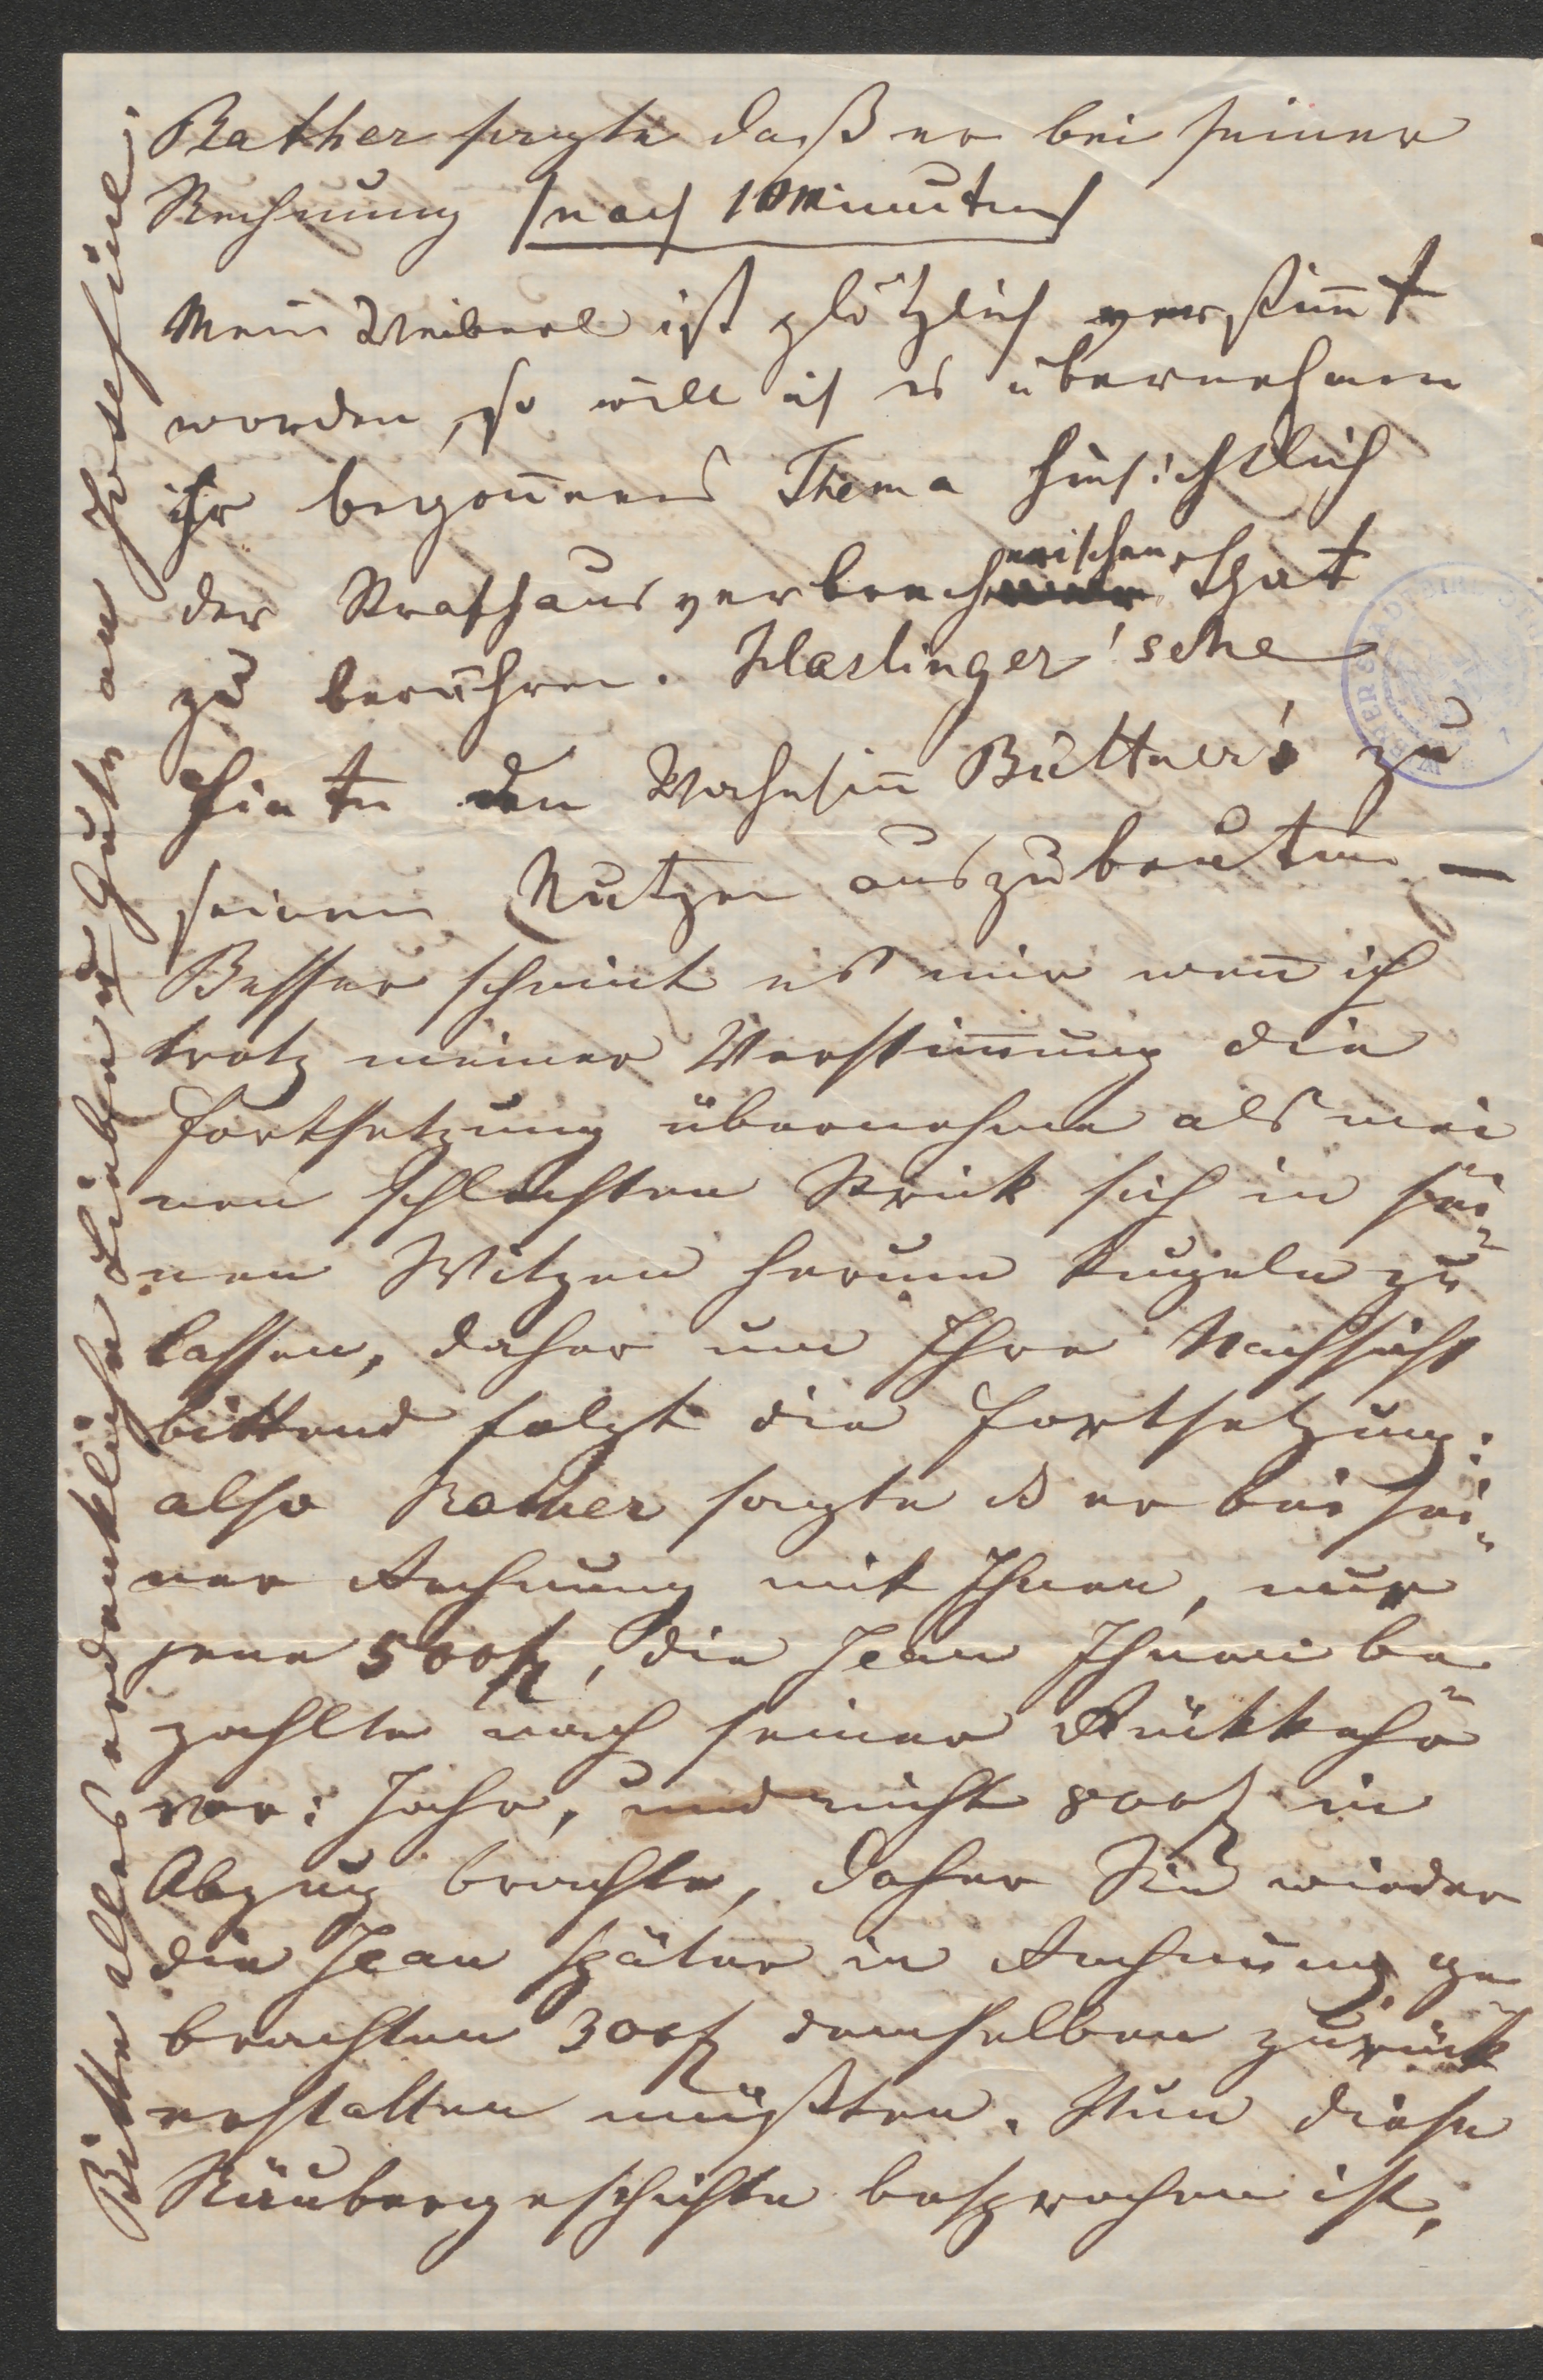 Rather sagte daß er bei seiner
Rechnung /nach 10 Minuten/
Mein Weiberl ist plötzlich verstim̄t
worden, so will ich es übernehmen
ihr begon̄enes Thema hinsichtlich
der Strafhausverbrecherischen That
zu berühren. Haslinger'sche
Finten den Wahnsin̄ Büttner's zu
seinem Nutzen auszubeuten —
Besser scheint es mir wen̄ ich
trotz meiner Verstim̄ung die
Fortsetzung übernehme als mei
nen schlechten Strick sich in sei-
nen Witzen herum kugeln zu
lassen, daher um Ihre Nachsicht
bittend folgt die Fortsetzung:
also Rather sagte ds er bei sei-
ner Rechnung mit Ihnen, nur
jene 500 fl, die Jean Ihnen be-
zahlte nach seiner Rückkehr
vor: Jahr, und nicht 800 f in
Abzug brachte, daher Sie wieder
die Jean später in Rechnung ge
brachten 300 f demselben zurück
erstatten müßten. Nun diese
Räubergeschichte besprochen ist,
Bitte alles erdenkliche Liebe u Gute an Josefine.